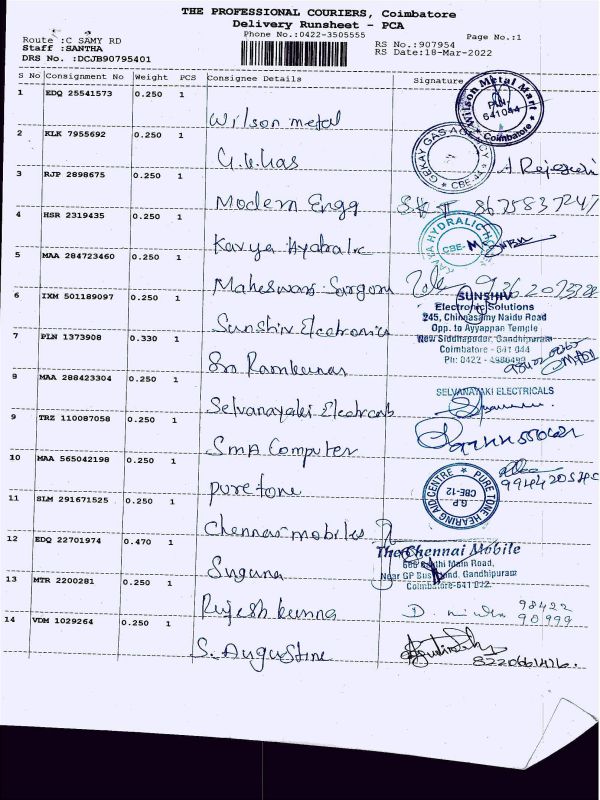 THE PROFESSIONAL COURIERS, Coimbatore
Delivery Runsheet - PCA
Phone No.:0422-3505555
Page No.:1
Route :C SAMY RD
Staff :SANTHA
DRS No. :DCJB90795401
RS No.:907954
RS Date:18-Mar-2022
S No Consignment No Weight PCS Consignee Details Signature
1 EDQ 25541573 0.250 1 Wilson metal
Wilson Metal Mart
641044
Coimbatore
2 KLK 7955692 0.250 1 G.K.Gas
GEKAY GAS AGENCY
CBE-
3 RJP 2898675 0.250 1 Modern Engg
4 HSR 2319435 0.250 1 Kavya Hydralic
KAVYA HYDRALIC
CBE-
5 MAA 284723460 0.250 1 Maheswari
6 IXM 501189097 0.250 1 Sunshiv Electronics
SUNSHIV
Electronic Solutions
245, Chinnasamy Naidu Road
Opp. to Ayyappan Temple
New Siddhapudur, Gandhipuram
Coimbatore - 641 044
Ph: 0422 - 4986493
7 PLN 1373908 0.330 1 Sri Ramkumar
8 MAA 288423304 0.250 1 Selvanayaki Electricals
SELVANAYAKI ELECTRICALS
9 TRZ 110087058 0.250 1 SMA Computer
10 MAA 565042198 0.250 1 pure tone
PURE TONE HEARING AID CENTRE
G.P
CBE-12
11 SLM 291671525 0.250 1 Chennai mobiles
The Chennai Mobile
Main Road,
Near GP Bus Stand. Gandhipuram
Coimbatore-641 012
12 EDQ 22701974 0.470 1 Suguna
13 MTR 2200281 0.250 1 Rajesh kanna
98422
90999
14 VDM 1029264 0.250 1 S. Augustine